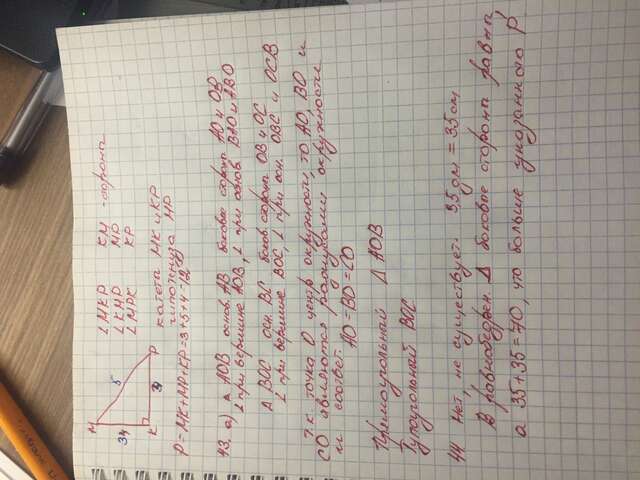 M
3 4
5
K
3
P
∠MKP KM - стороны
∠KMP MP
∠MPK KP
катеты MK и KP
гипотенуза MP
P = MK+MP+KP=3+5+4=12
43. а) Δ AOB основ. AB боковые стороны AO и OB
∠ при вершине AOB, ∠ при основ. BAO и ABO
Δ BOC осн. BC боков. стороны OB и OC
∠ при вершине BOC, ∠ при осн. OBC и OCB
т.к. точка O центр окружности, то AO, BO и
CO являются радиусами окружности
и соответ.
AO = BO = CO
Прямоугольный Δ AOB
Тупоугольный BOC
44 Нет, не существует. 3,5 дм = 35 см
В равнобедрен. Δ боковые стороны равны,
а 35+35=70, что больше указанного P.